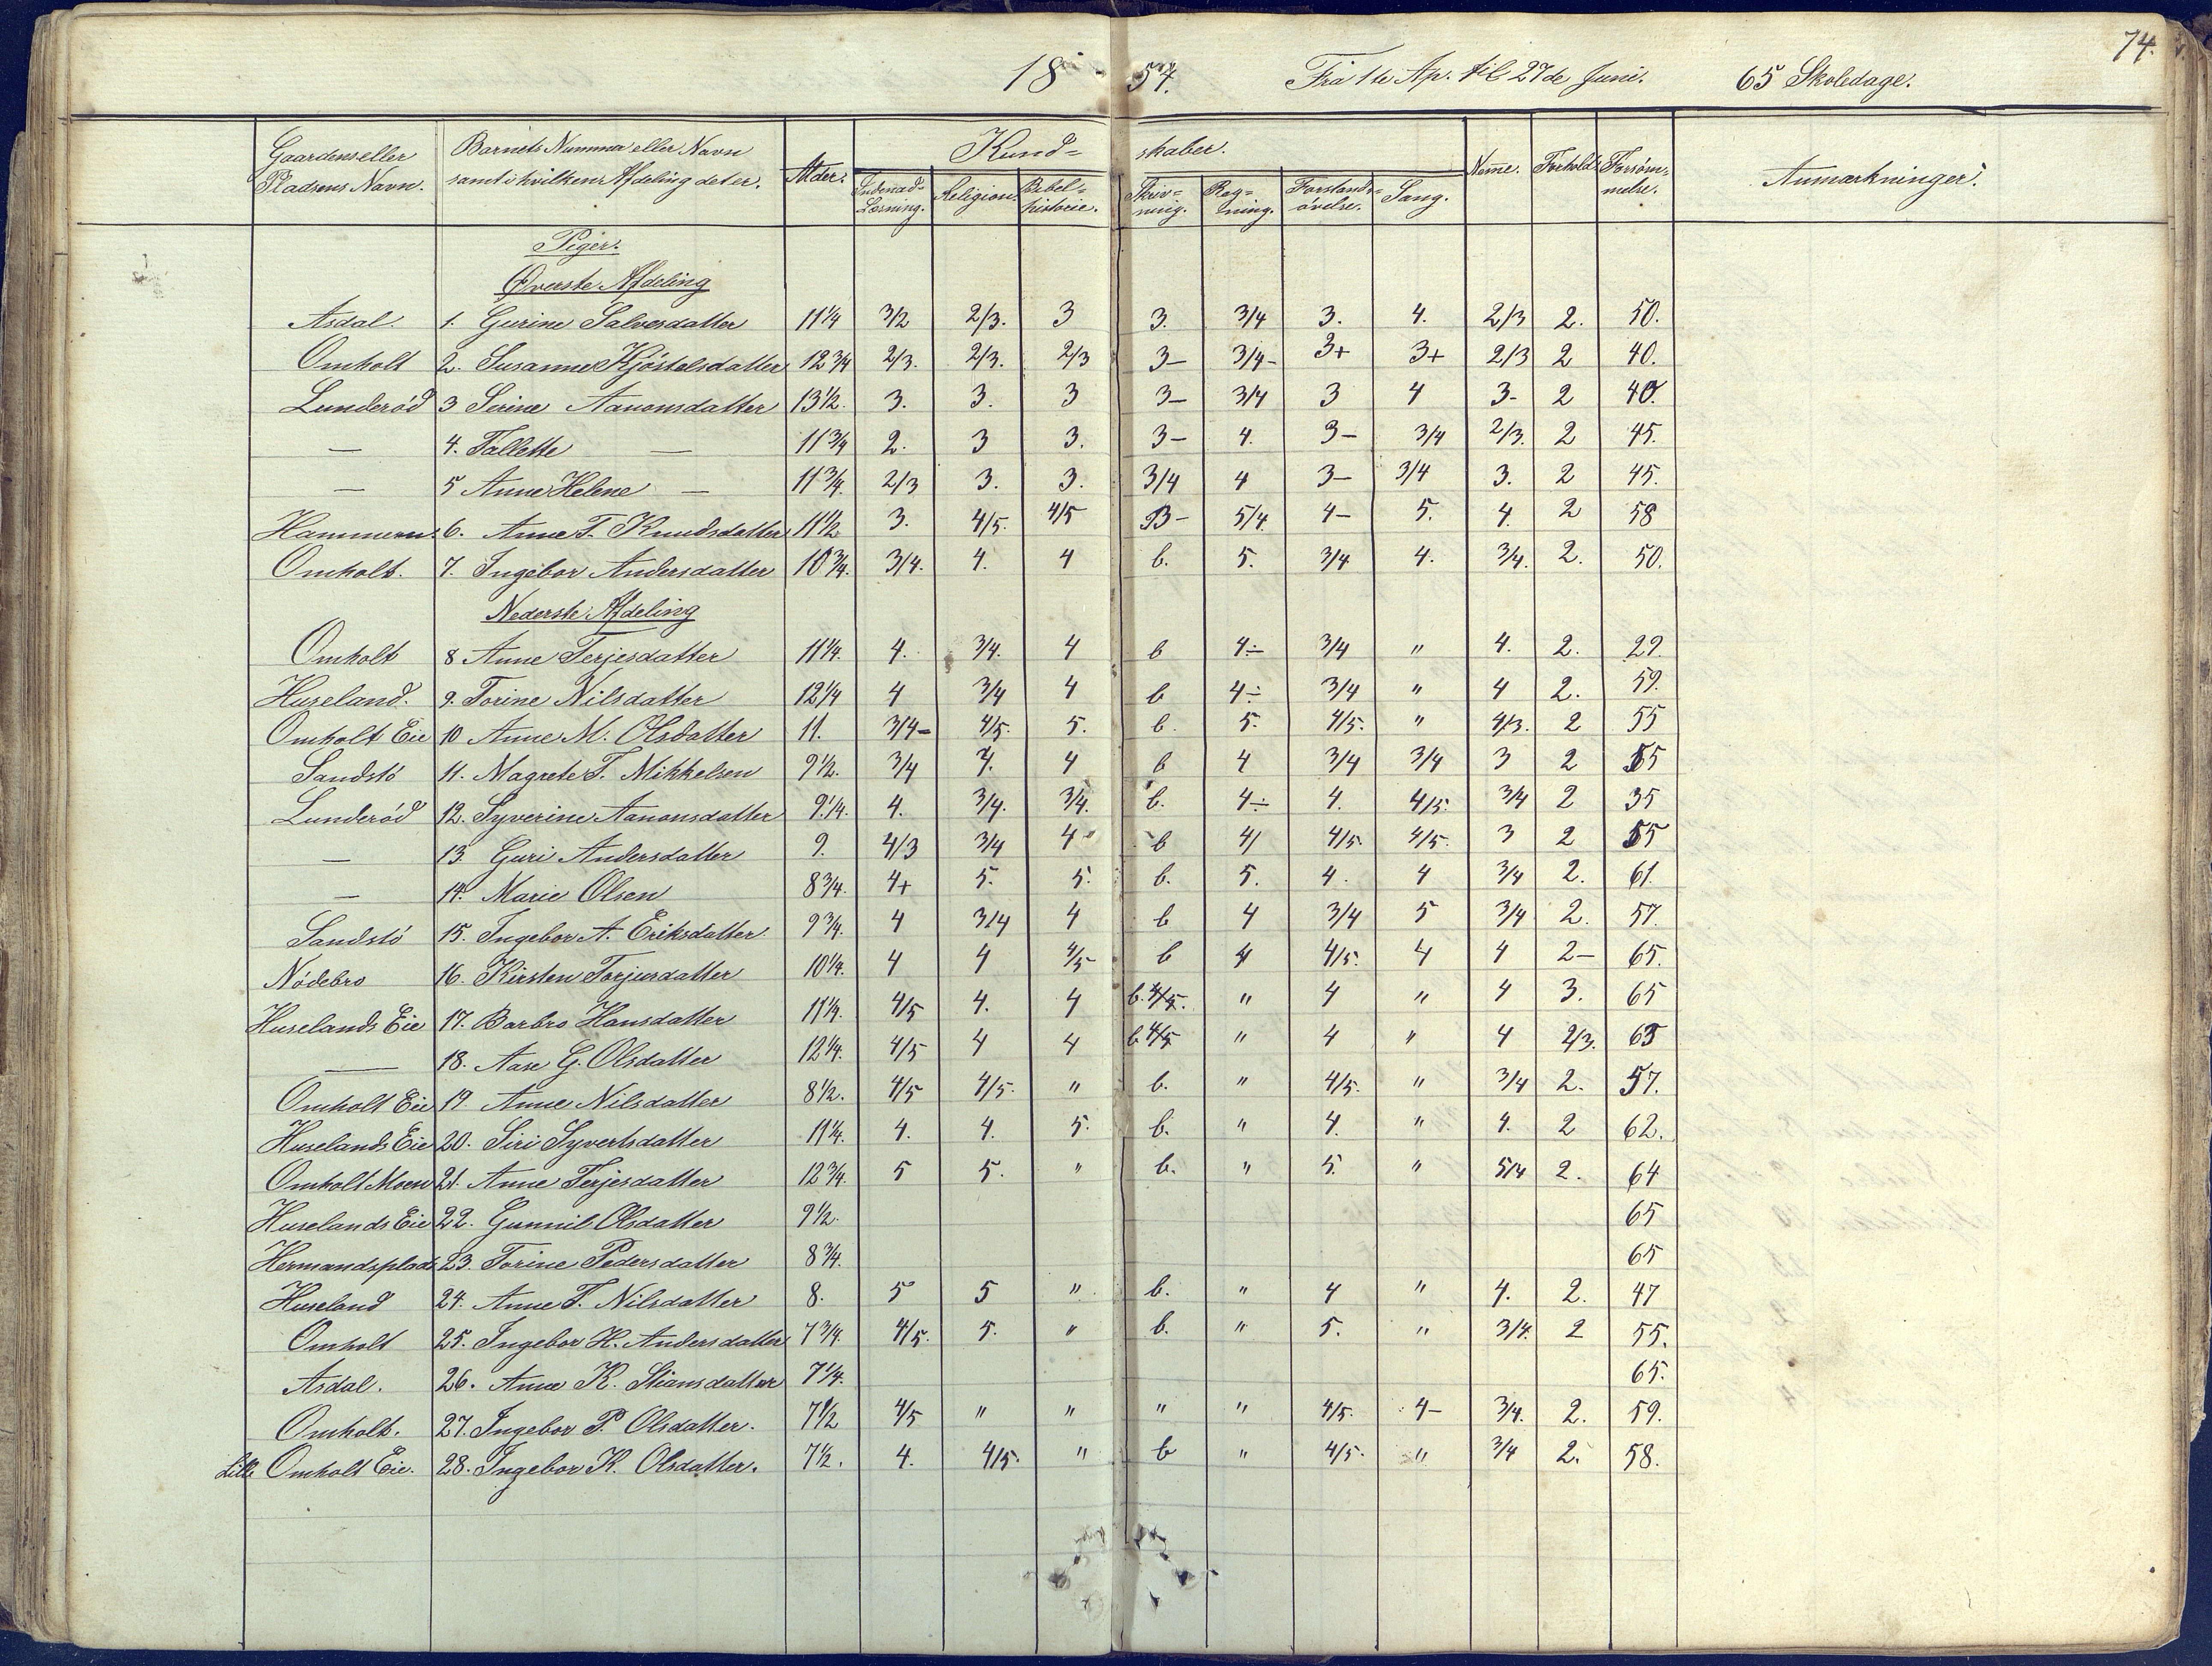 74.
1854. Fra 1te Ap. til 27de Juni. 65 Skoledage.
Gaardens eller Pladsens Navn. Barnets Nummer eller Navn samt i hvilken Afdeling det er. Alder. Kundskaber. Indenad-Læsning. Religion. Bibelhistorie. Skrivning. Regning. Forstandsövelse. Sang. Nemme. Forhold. Forsömmelse. Anmærkninger.
Piger.
Øverste Afdeling
Asdal. 1. Gurine Salvesdatter 11 1/4 3/2 2/3. 3 3. 3/4 3. 4. 2/3 2. 50.
Omholt 2. Susanne Kjöstelsdatter 12 3/4 2/3. 2/3. 2/3 3- 3/4- 3+ 3+ 2/3 2 40.
Lunderöd 3 Serine Aanonsdatter 13 1/2. 3. 3. 3 3- 3/4 3 4 3- 2 40.
— 4. Tallette — 11 3/4 2. 3 3. 3- 4. 3- 3/4 2/3. 2 45.
— 5 Anne Helene — 11 3/4. 2/3 3. 3. 3/4 4 3- 3/4 3. 2 45.
Hammeren. 6. Anne T. Knudsdatter 11 1/2 3. 4/5. 4/5 B- 5/4. 4- 5. 4. 2 58
Omholt. 7. Ingebor Andersdatter 10 3/4. 3/4. 4. 4 b. 5. 3/4 4. 3/4. 2. 50.
Nederste Afdeling
Omholt 8 Anne Terjesdatter 11 1/4. 4. 3/4. 4 b 4÷ 3/4 " 4. 2. 29.
Huseland. 9. Torine Nilsdatter 12 1/4 4 3/4 4 b 4÷ 3/4 " 4 2. 59.
Omholt Eie 10 Anne M. Olsdatter 11. 3/4- 4/5. 5. b. 5. 4/5. " 4/3. 2 55
Sandstö 11. Magrete T. Mikkelsen 9 1/2. 3/4 4. 4 b 4 3/4 3/4 3 2 55
Lunderöd 12. Syverine Aanonsdatter 9 1/4. 4. 3/4. 3/4. b. 4÷ 4. 4/5. 3/4 2 35
— 13 Guri Andersdatter 9. 4/3 3/4 4 b 4/ 4/5 4/5. 3 2 55
— 14. Marie Olsen 8 3/4. 4+ 5. 5. b. 5. 4. 4 3/4 2. 61.
Sandstö 15. Ingebor A. Eriksdatter 9 3/4. 4 3/4 4 b 4 3/4 5 3/4 2. 57.
Nödebro 16. Kirsten Torjusdatter 10 1/4. 4 4 4/5 b 4 4/5. 4 4 2- 65.
Huselands Eie 17. Barbro Hansdatter 11 1/4. 4/5 4. 4 b. 4/5. " 4 " 4 3. 65
— 18. Aase G. Olsdatter 12 1/4. 4/5 4 4 b 4/5 " 4 " 4 2/3. 65
Omholt Eie 19. Anne Nilsdatter 8 1/2. 4/5 4/5. " b. " 4/5. " 3/4 2. 57.
Huselands Eie 20. Siri Syvertsdatter 11 1/4. 4. 4. 5. b. " 4. " 4. 2 62.
Omholt Moen 21. Anne Terjesdatter 12 3/4. 5 5. " b. " 5. " 5/4 2. 64
Huselands Eie 22. Gunnil Olsdatter 9 1/2. 65
Hermandsplads 23. Torine Pedersdatter 8 3/4. 65
Huseland 24. Anne T. Nilsdatter 8. 5 5 " b. " 4 " 4. 2. 47
Omholt 25. Ingebor H. Andersdatter 7 3/4. 4/5. 5. " b. " 5. " 3/4. 2 55.
Asdal. 26. Anne K. Stiansdatter 7 1/4. 65.
Omholt. 27. Ingebor P. Olsdatter. 7 1/2 4/5 " " " " 4/5. 4- 3/4. 2. 59.
Lille Omholt Eie. 28. Ingebor K. Olsdatter. 7 1/2. 4. 4/5. " b " 4/5. " 3/4 2. 58.